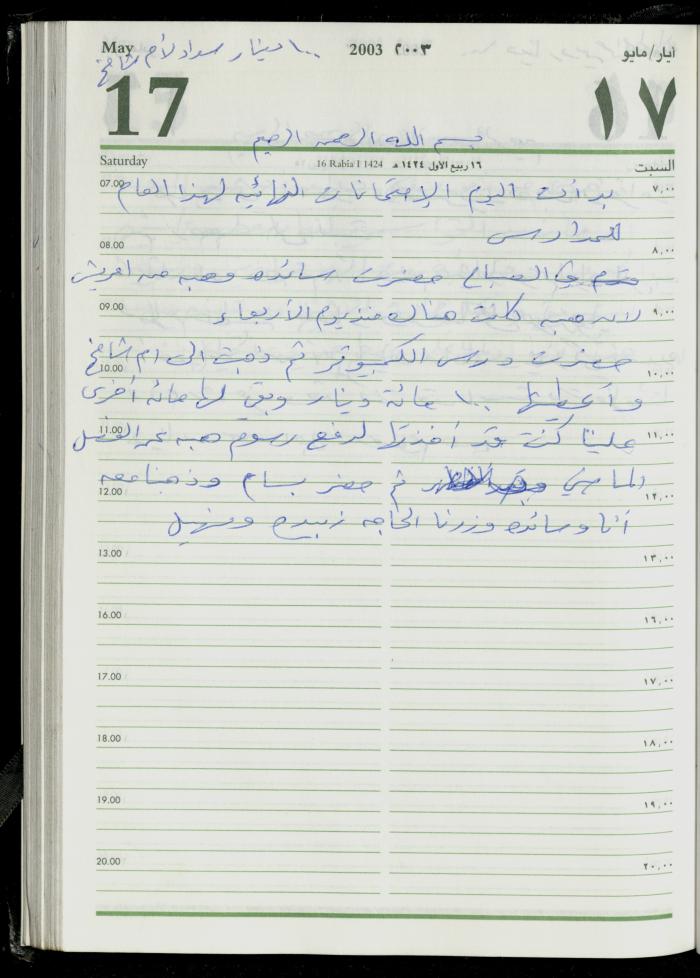 ١٠٠ دينار سداد لأم شامخ
May 2003 ٢٠٠٣ أيار/مايو
17 ١٧
بسم الله الرحمن الرحيم
Saturday 16 Rabia I 1424 ١٦ ربيع الأول ١٤٢٤ هـ السبت
07.00 بدأت اليوم الإمتحانات النهائيه لهذا العام ٧,٠٠
للمدارس
08.00 ٨,٠٠
في الصباح حضرت سائده وهبه من
09.00 لان هبه كانت هناك منذ يوم الأربعاء ٩,٠٠
حضرت درس الكمبيوتر ثم ذهبت الى ام شامخ
10.00 ١٠,٠٠
وأعطيتها ١٠٠ مائة دينار وبقي لها مائه أخرى
11.00 علينا كنت قد أخذتها لدفع رسوم هبه عن الفصل ١١,٠٠
الماضي ثم حضر بسام وذهبنا معه
12.00 ١٢,٠٠
أنا وسائده وزرنا الحاجه زبيده ومنهيل
13.00 ١٣,٠٠
16.00 ١٦,٠٠
17.00 ١٧,٠٠
18.00 ١٨,٠٠
19.00 ١٩,٠٠
20.00 ٢٠,٠٠